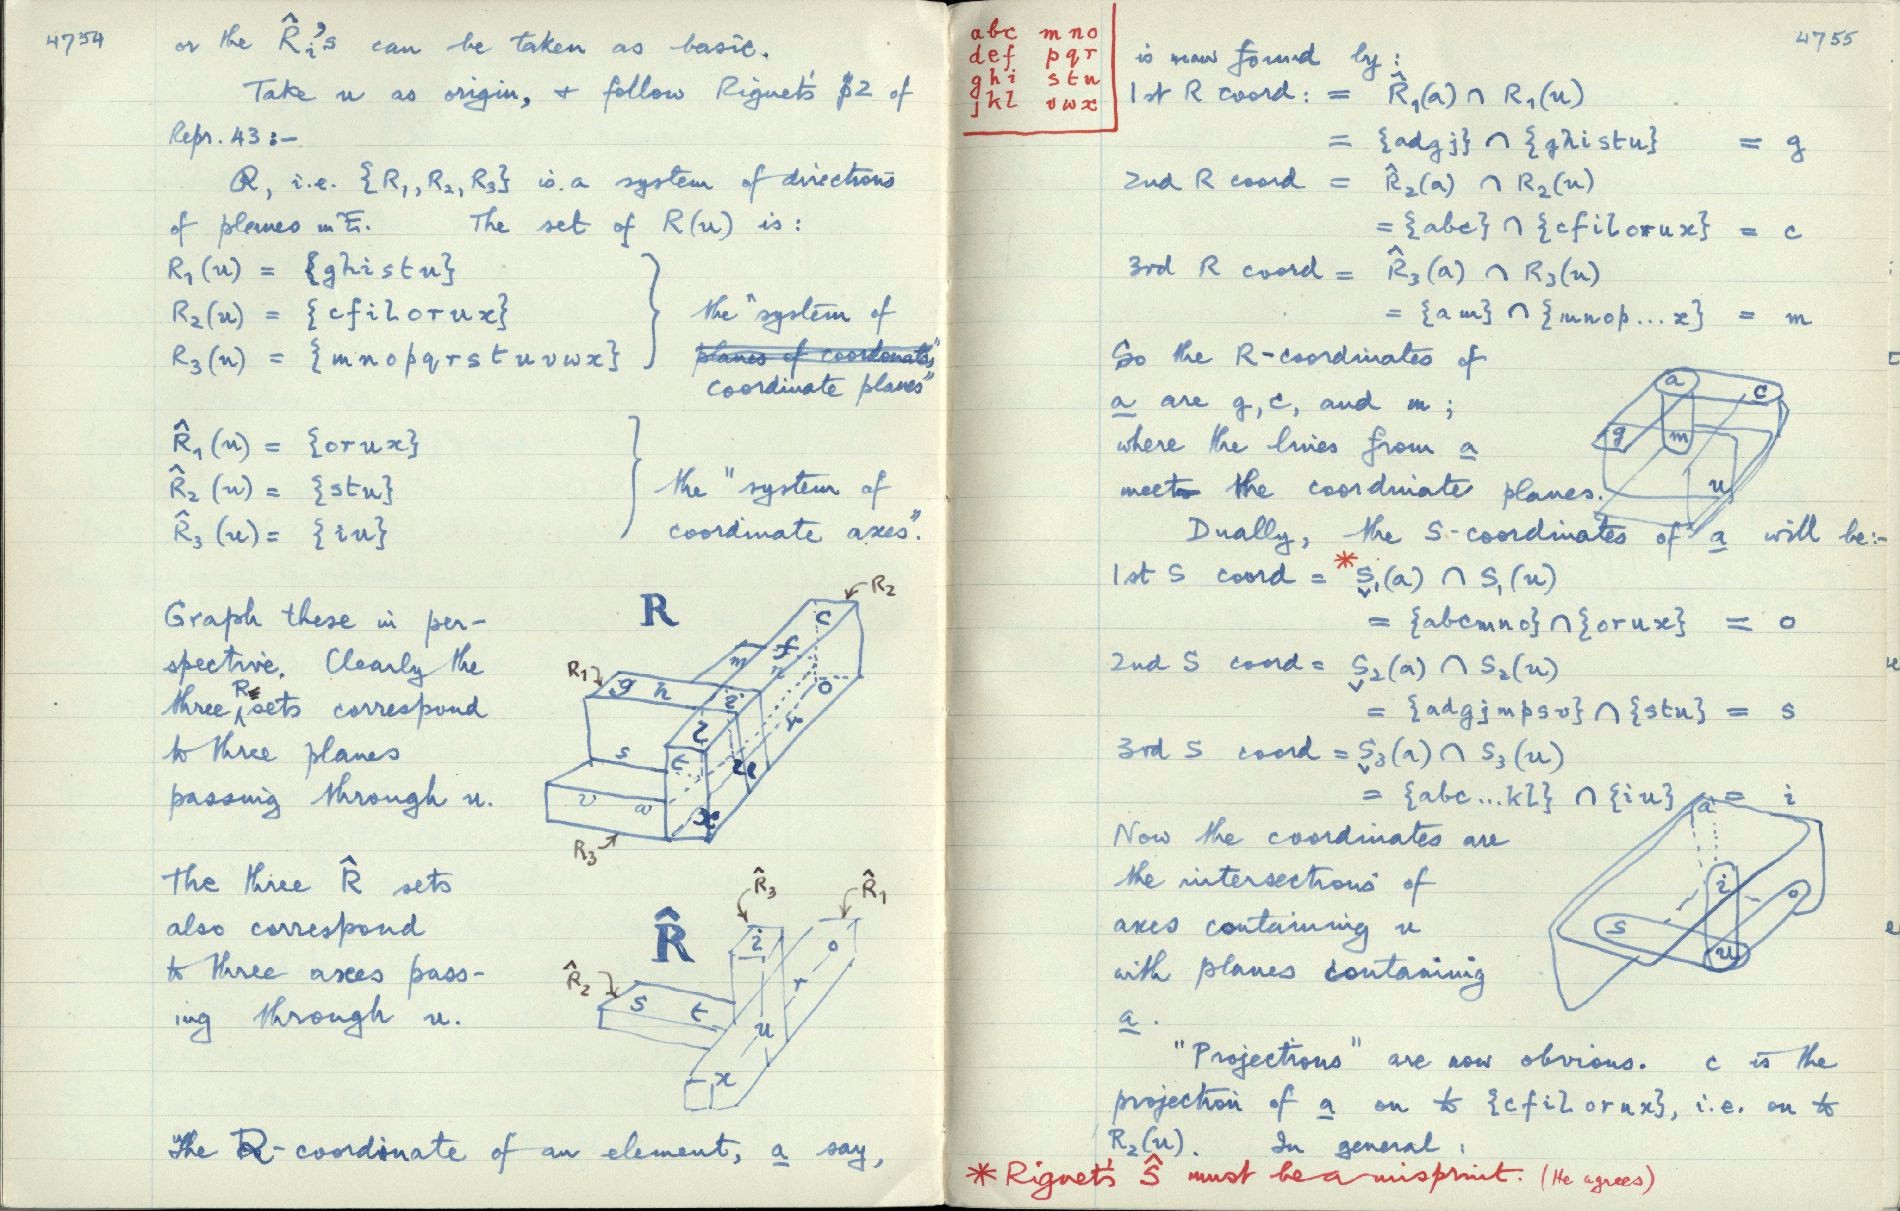 4754
or the R̂ᵢ's can be taken as basic.
Take u as origin, & follow Riguet's p2 of
Repr. 43:-
R, i.e. {R₁, R₂, R₃} is a system of directions
of planes in E. The set of R(u) is:
R₁(u) = {ghistu}
R₂(u) = {cfilorux}
R₃(u) = {mnopqrstuvwx}
the "system of
planes of coordinates"
coordinate planes"
R̂₁(u) = {orux}
R̂₂(u) = {stu}
R̂₃(u) = {iu}
the "system of
coordinate axes".
Graph these in per-
spective. Clearly the
three R sets correspond
to three planes
passing through u.
R
R₂
R₁
R₃
c
f
m
n
g h i
o
l
r
s
t
u
v w
x
The three R̂ sets
also correspond
to three axes pass-
ing through u.
R̂
R̂₃
R̂₁
R̂₂
i
o
r
s t
u
x
The R-coordinate of an element, a say,
4755
abc mno
def pqr
ghi stu
jkl vwx
is now found by:
1st R coord: = R̂₁(a) ∩ R₁(u)
= {adgj} ∩ {ghistu} = g
2nd R coord = R̂₂(a) ∩ R₂(u)
= {abc} ∩ {cfilorux} = c
3rd R coord = R̂₃(a) ∩ R₃(u)
= {am} ∩ {mnop...x} = m
So the R-coordinates of
a are g, c, and m;
where the lines from a
meet the coordinate planes.
a
c
g
m
u
Dually, the S-coordinates of a will be:-
1st S coord = * Š₁(a) ∩ S₁(u)
= {abcmno} ∩ {orux} = o
2nd S coord = Š₂(a) ∩ S₂(u)
= {adgjmpsv} ∩ {stu} = s
3rd S coord = Š₃(a) ∩ S₃(u)
= {abc...kl} ∩ {iu} = i
Now the coordinates are
the intersections of
axes containing u
with planes containing
a.
a
i
o
s
u
"Projections" are now obvious. c is the
projection of a on to {cfilorux}, i.e. on to
R₂(u). In general:
* Riguet's Ŝ must be a misprint. (He agrees)